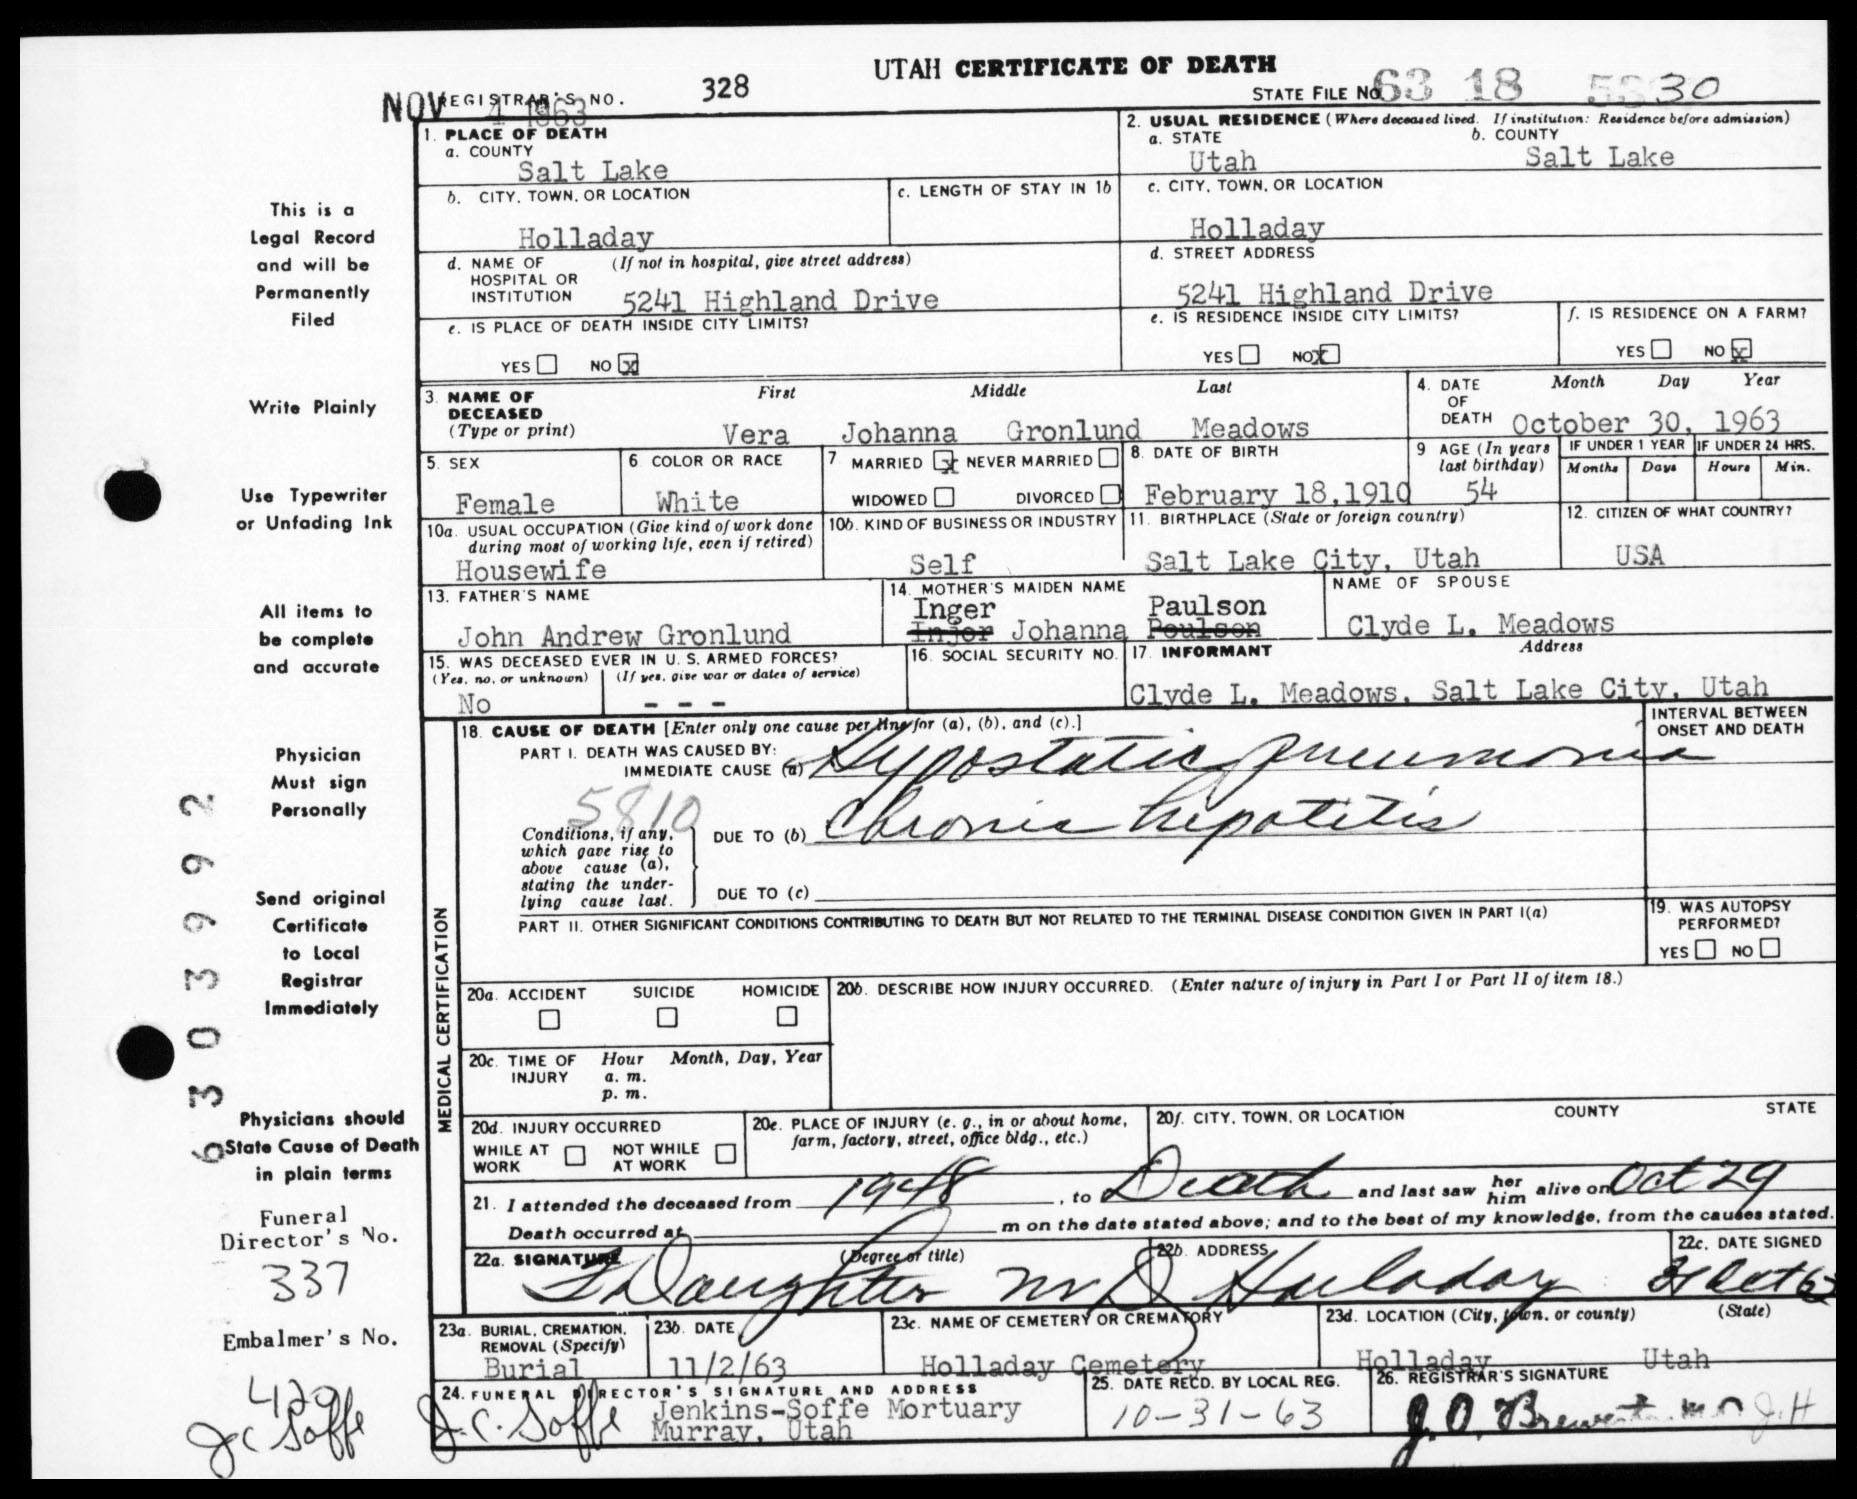 UTAH CERTIFICATE OF DEATH
NOV 4 1963
REGISTRAR'S NO. 328
STATE FILE NO. 63 18 5330
1. PLACE OF DEATH
a. COUNTY
Salt Lake
2. USUAL RESIDENCE (Where deceased lived. If institution: Residence before admission)
a. STATE
Utah
b. COUNTY
Salt Lake
b. CITY, TOWN, OR LOCATION
Holladay
c. LENGTH OF STAY IN 1b
c. CITY, TOWN, OR LOCATION
Holladay
d. NAME OF HOSPITAL OR INSTITUTION (If not in hospital, give street address)
5241 Highland Drive
d. STREET ADDRESS
5241 Highland Drive
e. IS PLACE OF DEATH INSIDE CITY LIMITS?
YES NO X
e. IS RESIDENCE INSIDE CITY LIMITS?
YES NO X
f. IS RESIDENCE ON A FARM?
YES NO X
3. NAME OF DECEASED (Type or print)
First Middle Last
Vera Johanna Gronlund Meadows
4. DATE OF DEATH
Month Day Year
October 30, 1963
5. SEX
Female
6. COLOR OR RACE
White
7. MARRIED X NEVER MARRIED
WIDOWED DIVORCED
8. DATE OF BIRTH
February 18,1910
9 AGE (In years last birthday)
54
IF UNDER 1 YEAR
Months Days
IF UNDER 24 HRS.
Hours Min.
10a. USUAL OCCUPATION (Give kind of work done during most of working life, even if retired)
Housewife
10b. KIND OF BUSINESS OR INDUSTRY
Self
11. BIRTHPLACE (State or foreign country)
Salt Lake City, Utah
12. CITIZEN OF WHAT COUNTRY?
USA
13. FATHER'S NAME
John Andrew Gronlund
14. MOTHER'S MAIDEN NAME
Inger Paulson
Injor Johanna Poulson
NAME OF SPOUSE
Clyde L. Meadows
15. WAS DECEASED EVER IN U. S. ARMED FORCES?
(Yes, no, or unknown) (If yes, give war or dates of service)
No - - -
16. SOCIAL SECURITY NO.
17. INFORMANT Address
Clyde L. Meadows, Salt Lake City, Utah
MEDICAL CERTIFICATION
18. CAUSE OF DEATH [Enter only one cause per line for (a), (b), and (c).]
INTERVAL BETWEEN ONSET AND DEATH
PART I. DEATH WAS CAUSED BY:
IMMEDIATE CAUSE (a) Hypostatic pneumonia
5810
Conditions, if any, which gave rise to above cause (a), stating the underlying cause last.
DUE TO (b) Chronic hepatitis
DUE TO (c)
PART II. OTHER SIGNIFICANT CONDITIONS CONTRIBUTING TO DEATH BUT NOT RELATED TO THE TERMINAL DISEASE CONDITION GIVEN IN PART I(a)
19. WAS AUTOPSY PERFORMED?
YES NO
20a. ACCIDENT SUICIDE HOMICIDE
20b. DESCRIBE HOW INJURY OCCURRED. (Enter nature of injury in Part I or Part II of item 18.)
20c. TIME OF INJURY
Hour Month, Day, Year
a. m.
p. m.
20d. INJURY OCCURRED
WHILE AT WORK NOT WHILE AT WORK
20e. PLACE OF INJURY (e. g., in or about home, farm, factory, street, office bldg., etc.)
20f. CITY, TOWN, OR LOCATION COUNTY STATE
21. I attended the deceased from 1948, to Death and last saw her him alive on Oct 29
Death occurred at m on the date stated above; and to the best of my knowledge, from the causes stated.
22a. SIGNATURE (Degree or title)
Daughter MD
22b. ADDRESS
Holladay
22c. DATE SIGNED
31 Oct 63
23a. BURIAL, CREMATION, REMOVAL (Specify)
Burial
23b. DATE
11/2/63
23c. NAME OF CEMETERY OR CREMATORY
Holladay Cemetery
23d. LOCATION (City, town, or county) (State)
Holladay Utah
24. FUNERAL DIRECTOR'S SIGNATURE AND ADDRESS
J.C. Soffe Jenkins-Soffe Mortuary
Murray, Utah
25. DATE RECD. BY LOCAL REG.
10-31-63
26. REGISTRAR'S SIGNATURE
J.H
This is a
Legal Record
and will be
Permanently
Filed
Write Plainly
Use Typewriter
or Unfading Ink
All items to
be complete
and accurate
Physician
Must sign
Personally
Send original
Certificate
to Local
Registrar
Immediately
Physicians should
State Cause of Death
in plain terms
Funeral
Director's No.
337
Embalmer's No.
420
JC Soffe
6303992